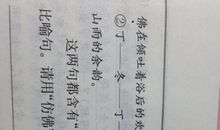 佛在倾吐着浴后的欢
②丁——冬——丁
山雨的余韵。
这两句都含有“
比喻句。请用“仿佛